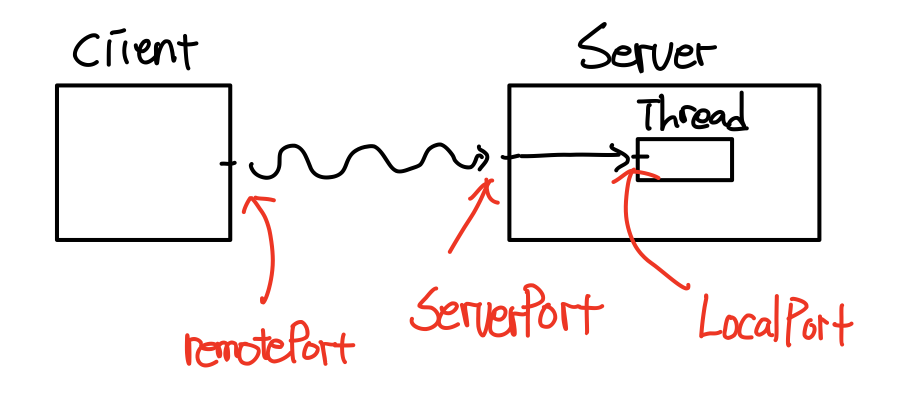 Client
Server
Thread
remotePort
ServerPort
LocalPort